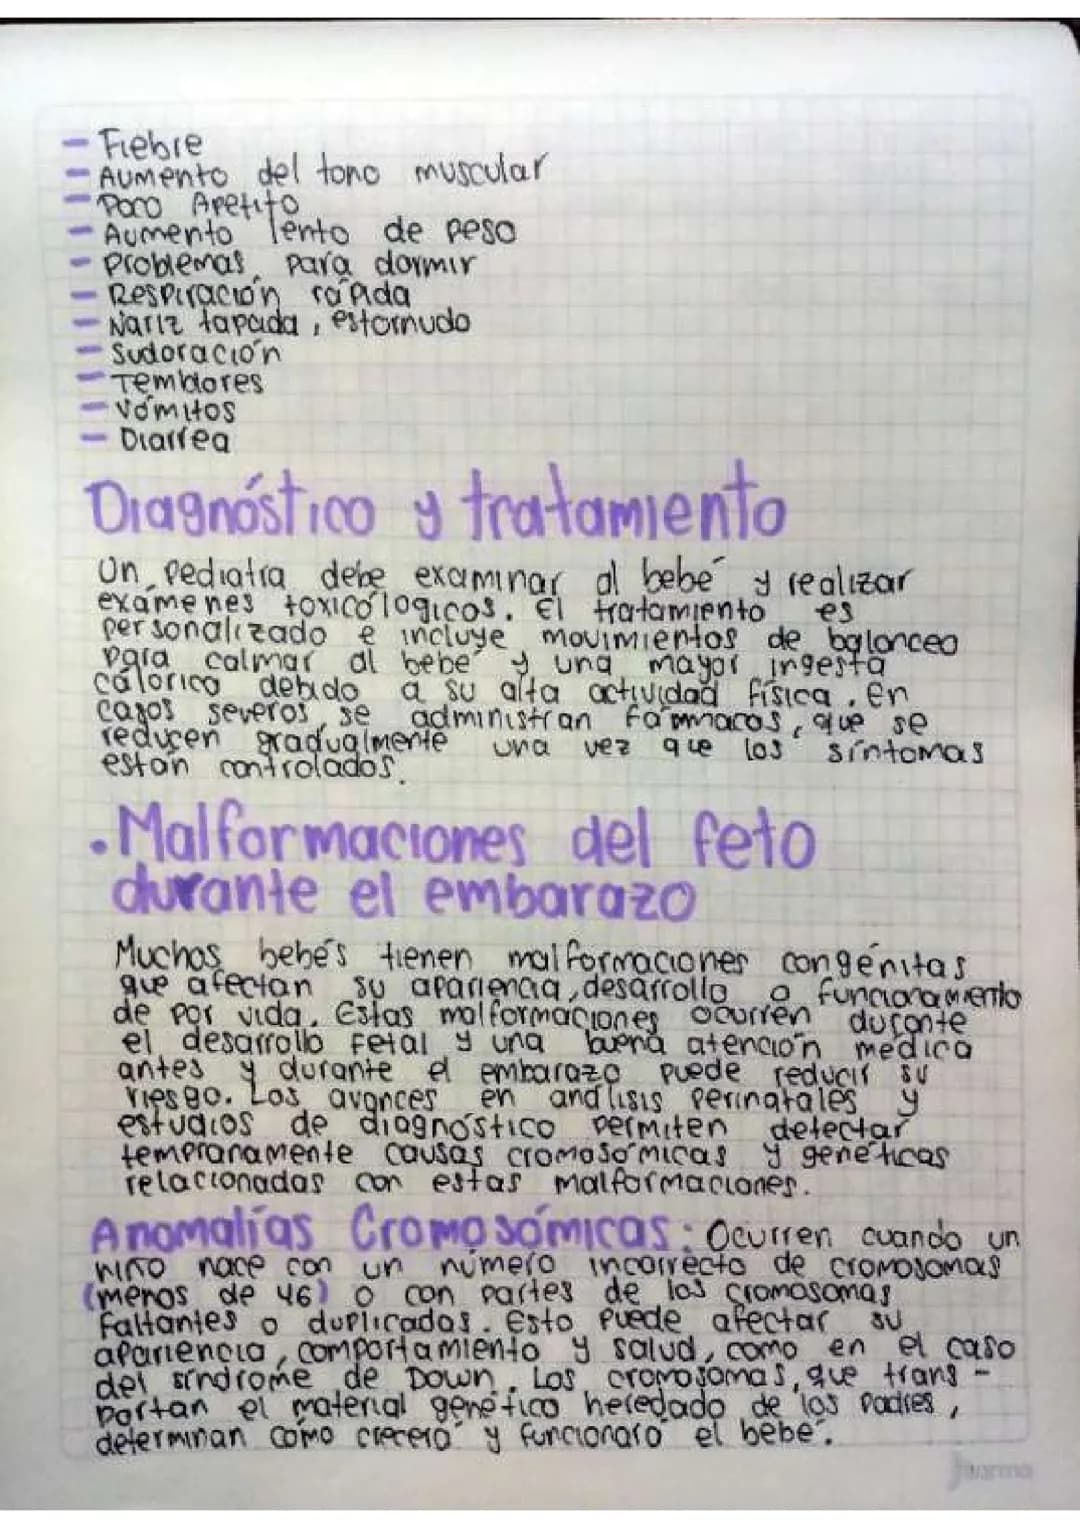 - Fiebre
- Aumento del tono muscular
- Poco Apetito
- Aumento lento de peso
- Problemas para dormir
- Respiración rápida
- Nariz tapada, estornudo
- Sudoración
- Temblores
- Vómitos
- Diarrea
Diagnóstico y tratamiento
Un pediatra debe examinar al bebé y realizar
exámenes toxicólogicos. El tratamiento es
personalizado e incluye movimientos de balanceo
para calmar al bebé y una mayor ingesta
calorica debido a su alta actividad física. En
casos severos, se administran fármacos, que se
reducen gradualmente una vez que los síntomas
estan controlados.
• Malformaciones del feto
durante el embarazo
Muchos bebés tienen malformaciones congénitas
que afectan su apariencia, desarrollo o funcionamiento
de por vida. Estas malformaciones ocurren durante
el desarrollo fetal y una buena atención medica
antes y durante el embarazo puede reducir su
riesgo. Los avances en análisis perinatales y
estudios de diagnóstico permiten detectar
tempranamente causas cromosómicas y genéticas
relacionadas con estas malformaciones.
Anomalías Cromosómicas: Ocurren cuando un
niño nace con un número incorrecto de cromosomas
(menos de 46) o con partes de los cromosomas
faltantes o duplicados. Esto puede afectar su
apariencia, comportamiento y salud, como en el caso
del síndrome de Down. Los cromosomas, que trans-
portan el material genético heredado de los padres,
determinan como crecerá y funcionará el bebé.